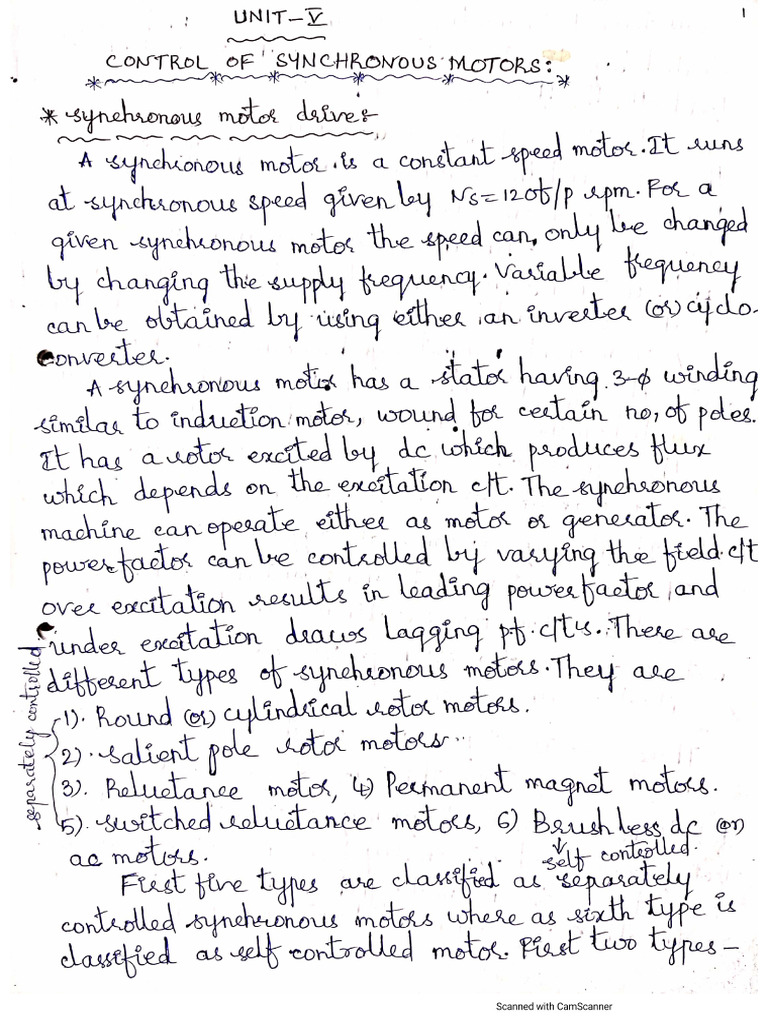 UNIT-V
1
CONTROL OF SYNCHRONOUS MOTORS:
* synchronous motor drives
A synchionous motor is a constant speed motor. It runs
at synchronous speed given by Ns=120f/p rpm. For a
given synchronous motor the speed can, only be changed
by changing the supply frequency. Variable frequency
can be obtained by using either an inverter (or) cyclo-
converter.
A synchronous motor has a stator having 3-ϕ winding
similar to induction motor, wound for certain no, of poles.
It has a rotor excited by dc which produces flux
which depends on the excitation c/t. The synchronous
machine can operate either as motor or generator. The
power factor can be controlled by varying the field c/t
over excitation results in leading power factor and
under excitation draws lagging pf. c/ts. There are
different types of synchronous motors. They are
separately controlled
1). Round (or) cylindrical rotor motors.
2). Salient pole rotor motors
3). Reluctance motor, 4) Permanent magnet motors.
5). switched reluctance motors, 6) Brushless dc (or)
ac motors.
self controlled.
First five types are classified as separately
controlled synchronous motors where as sixth type is
classified as self controlled motor. First two types-
Scanned with CamScanner